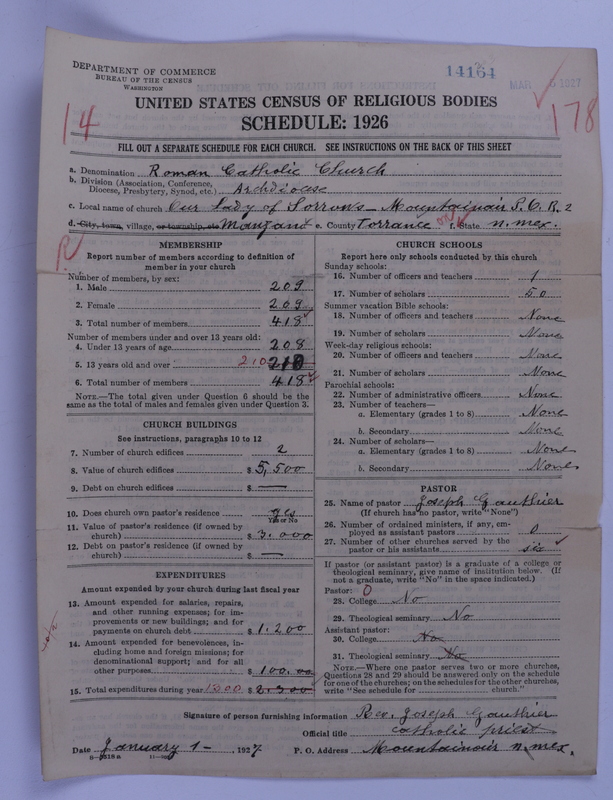 DEPARTMENT OF COMMERCE
BUREAU OF THE CENSUS
WASHINGTON
14164
MAR 5 1927
14
178
UNITED STATES CENSUS OF RELIGIOUS BODIES
SCHEDULE: 1926
FILL OUT A SEPARATE SCHEDULE FOR EACH CHURCH. SEE INSTRUCTIONS ON THE BACK OF THIS SHEET
a. Denomination Roman Catholic Church
b. Division (Association, Conference, Diocese, Presbytery, Synod, etc.) Archdiocese
c. Local name of church Our Lady of Sorrows - Mountainair S.C.R. 2
d. City, town, village, or township, etc Manzano e. County Torrance f. State n. mex.
R
MEMBERSHIP
Report number of members according to definition of
member in your church
Number of members, by sex:
1. Male 209
2. Female 209
3. Total number of members 418
Number of members under and over 13 years old:
4. Under 13 years of age 208
5. 13 years old and over 210 210
6. Total number of members 418
NOTE.—The total given under Question 6 should be
the same as the total of males and females given under Question 3.
CHURCH BUILDINGS
See instructions, paragraphs 10 to 12
7. Number of church edifices 2
8. Value of church edifices $ 5,500
9. Debt on church edifices $ —
10. Does church own pastor's residence yes
Yes or No
11. Value of pastor's residence (if owned by
church) $ 3.000
12. Debt on pastor's residence (if owned by
church) $ —
EXPENDITURES
Amount expended by your church during last fiscal year
13. Amount expended for salaries, repairs,
and other running expenses; for im-
provements or new buildings; and for
payments on church debt $ 1.200
14. Amount expended for benevolences, in-
cluding home and foreign missions; for
denominational support; and for all
other purposes $ 100.00
15. Total expenditures during year 1300 $ 2.300
CHURCH SCHOOLS
Report here only schools conducted by this church
Sunday schools:
16. Number of officers and teachers 1
17. Number of scholars 50
Summer vacation Bible schools:
18. Number of officers and teachers None
19. Number of scholars None
Week-day religious schools:
20. Number of officers and teachers None
21. Number of scholars None
Parochial schools:
22. Number of administrative officers None
23. Number of teachers—
a. Elementary (grades 1 to 8) None
b. Secondary None
24. Number of scholars—
a. Elementary (grades 1 to 8) None
b. Secondary None
PASTOR
25. Name of pastor Joseph Gauthier
(If church has no pastor, write "None")
26. Number of ordained ministers, if any, em-
ployed as assistant pastors 0
27. Number of other churches served by the
pastor or his assistants six
If pastor (or assistant pastor) is a graduate of a college or
theological seminary, give name of institution below. (If
not a graduate, write "No" in the space indicated.)
Pastor: 0
28. College No
29. Theological seminary No
Assistant pastor:
30. College No
31. Theological seminary No
NOTE.—Where one pastor serves two or more churches,
Questions 28 and 29 should be answered only on the schedule
for one of the churches; on the schedules for the other churches,
write "See schedule for church."
Signature of person furnishing information Rev. Joseph Gauthier
Official title catholic priest
Date January 1 -, 1927 P. O. Address Mountainair n. mex.